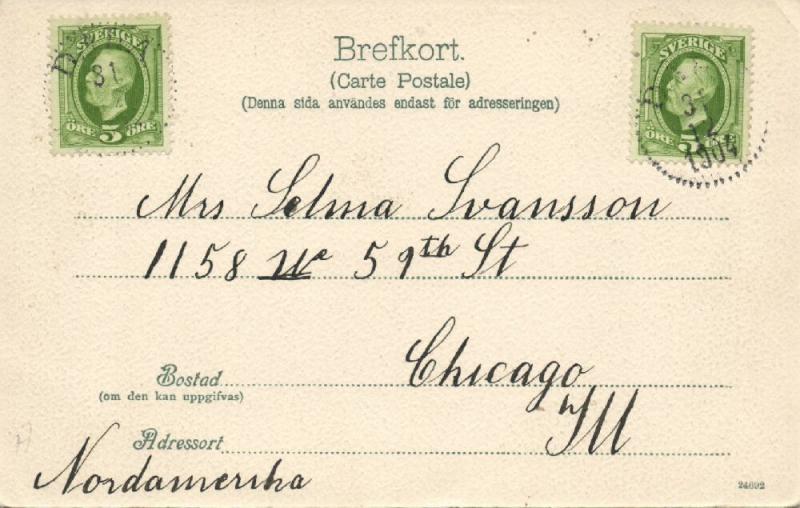 SVERIGE
31
ÖRE 5 ÖRE
Brefkort.
(Carte Postale)
(Denna sida användes endast för adresseringen)
SVERIGE
31
12
1904
ÖRE 5 ÖRE
Mrs Selma Svansson
1158 We 59th St
Chicago
Bostad
(om den kan uppgifvas)
Ill
Adressort
Nordamerika
24692